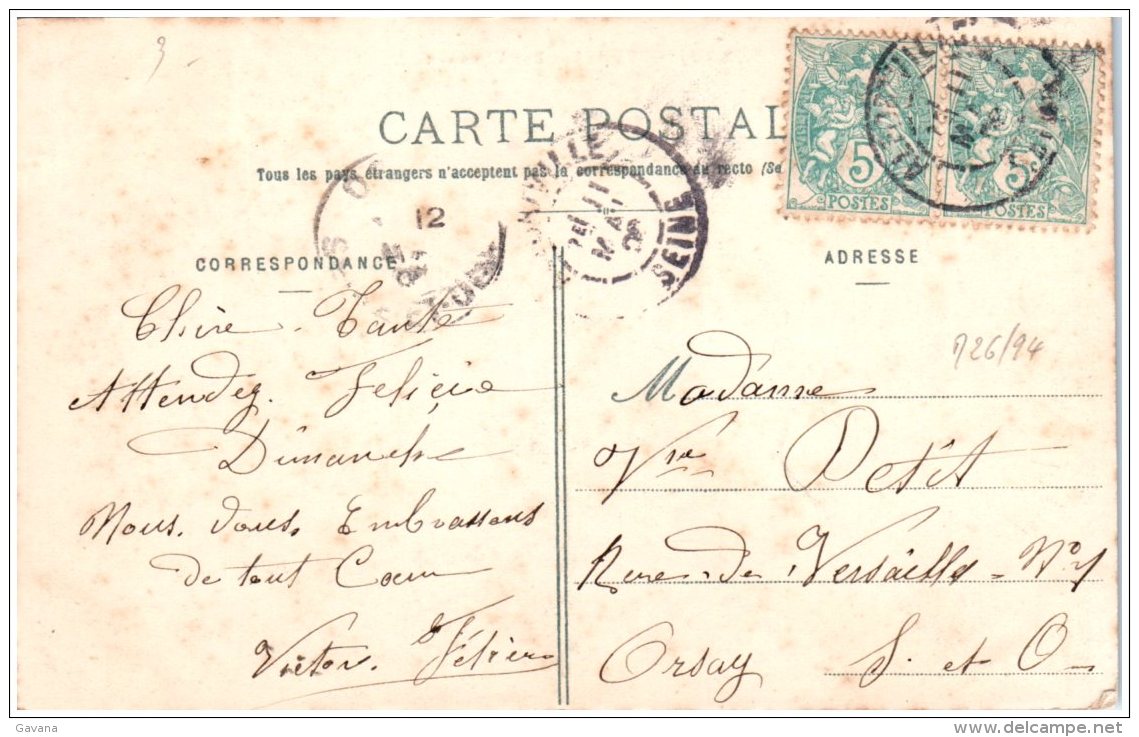 3
CARTE POSTAL
Tous les pays étrangers n'acceptent pas la correspondance au recto (Se
5
POSTES
5
POSTES
ALFORTVILLE
SEINE
11
MAI
12
CORRESPONDANCE
Chère Tante
Attendez Felicie
Dimanche
Nous Vous Embrassons
de tout Coeur
Victor. Félicie
ADRESSE
726/94
Madame
Vve Petit
Rue de Versailles - No 1
Orsay S. et O
Gavana
delcampe.net